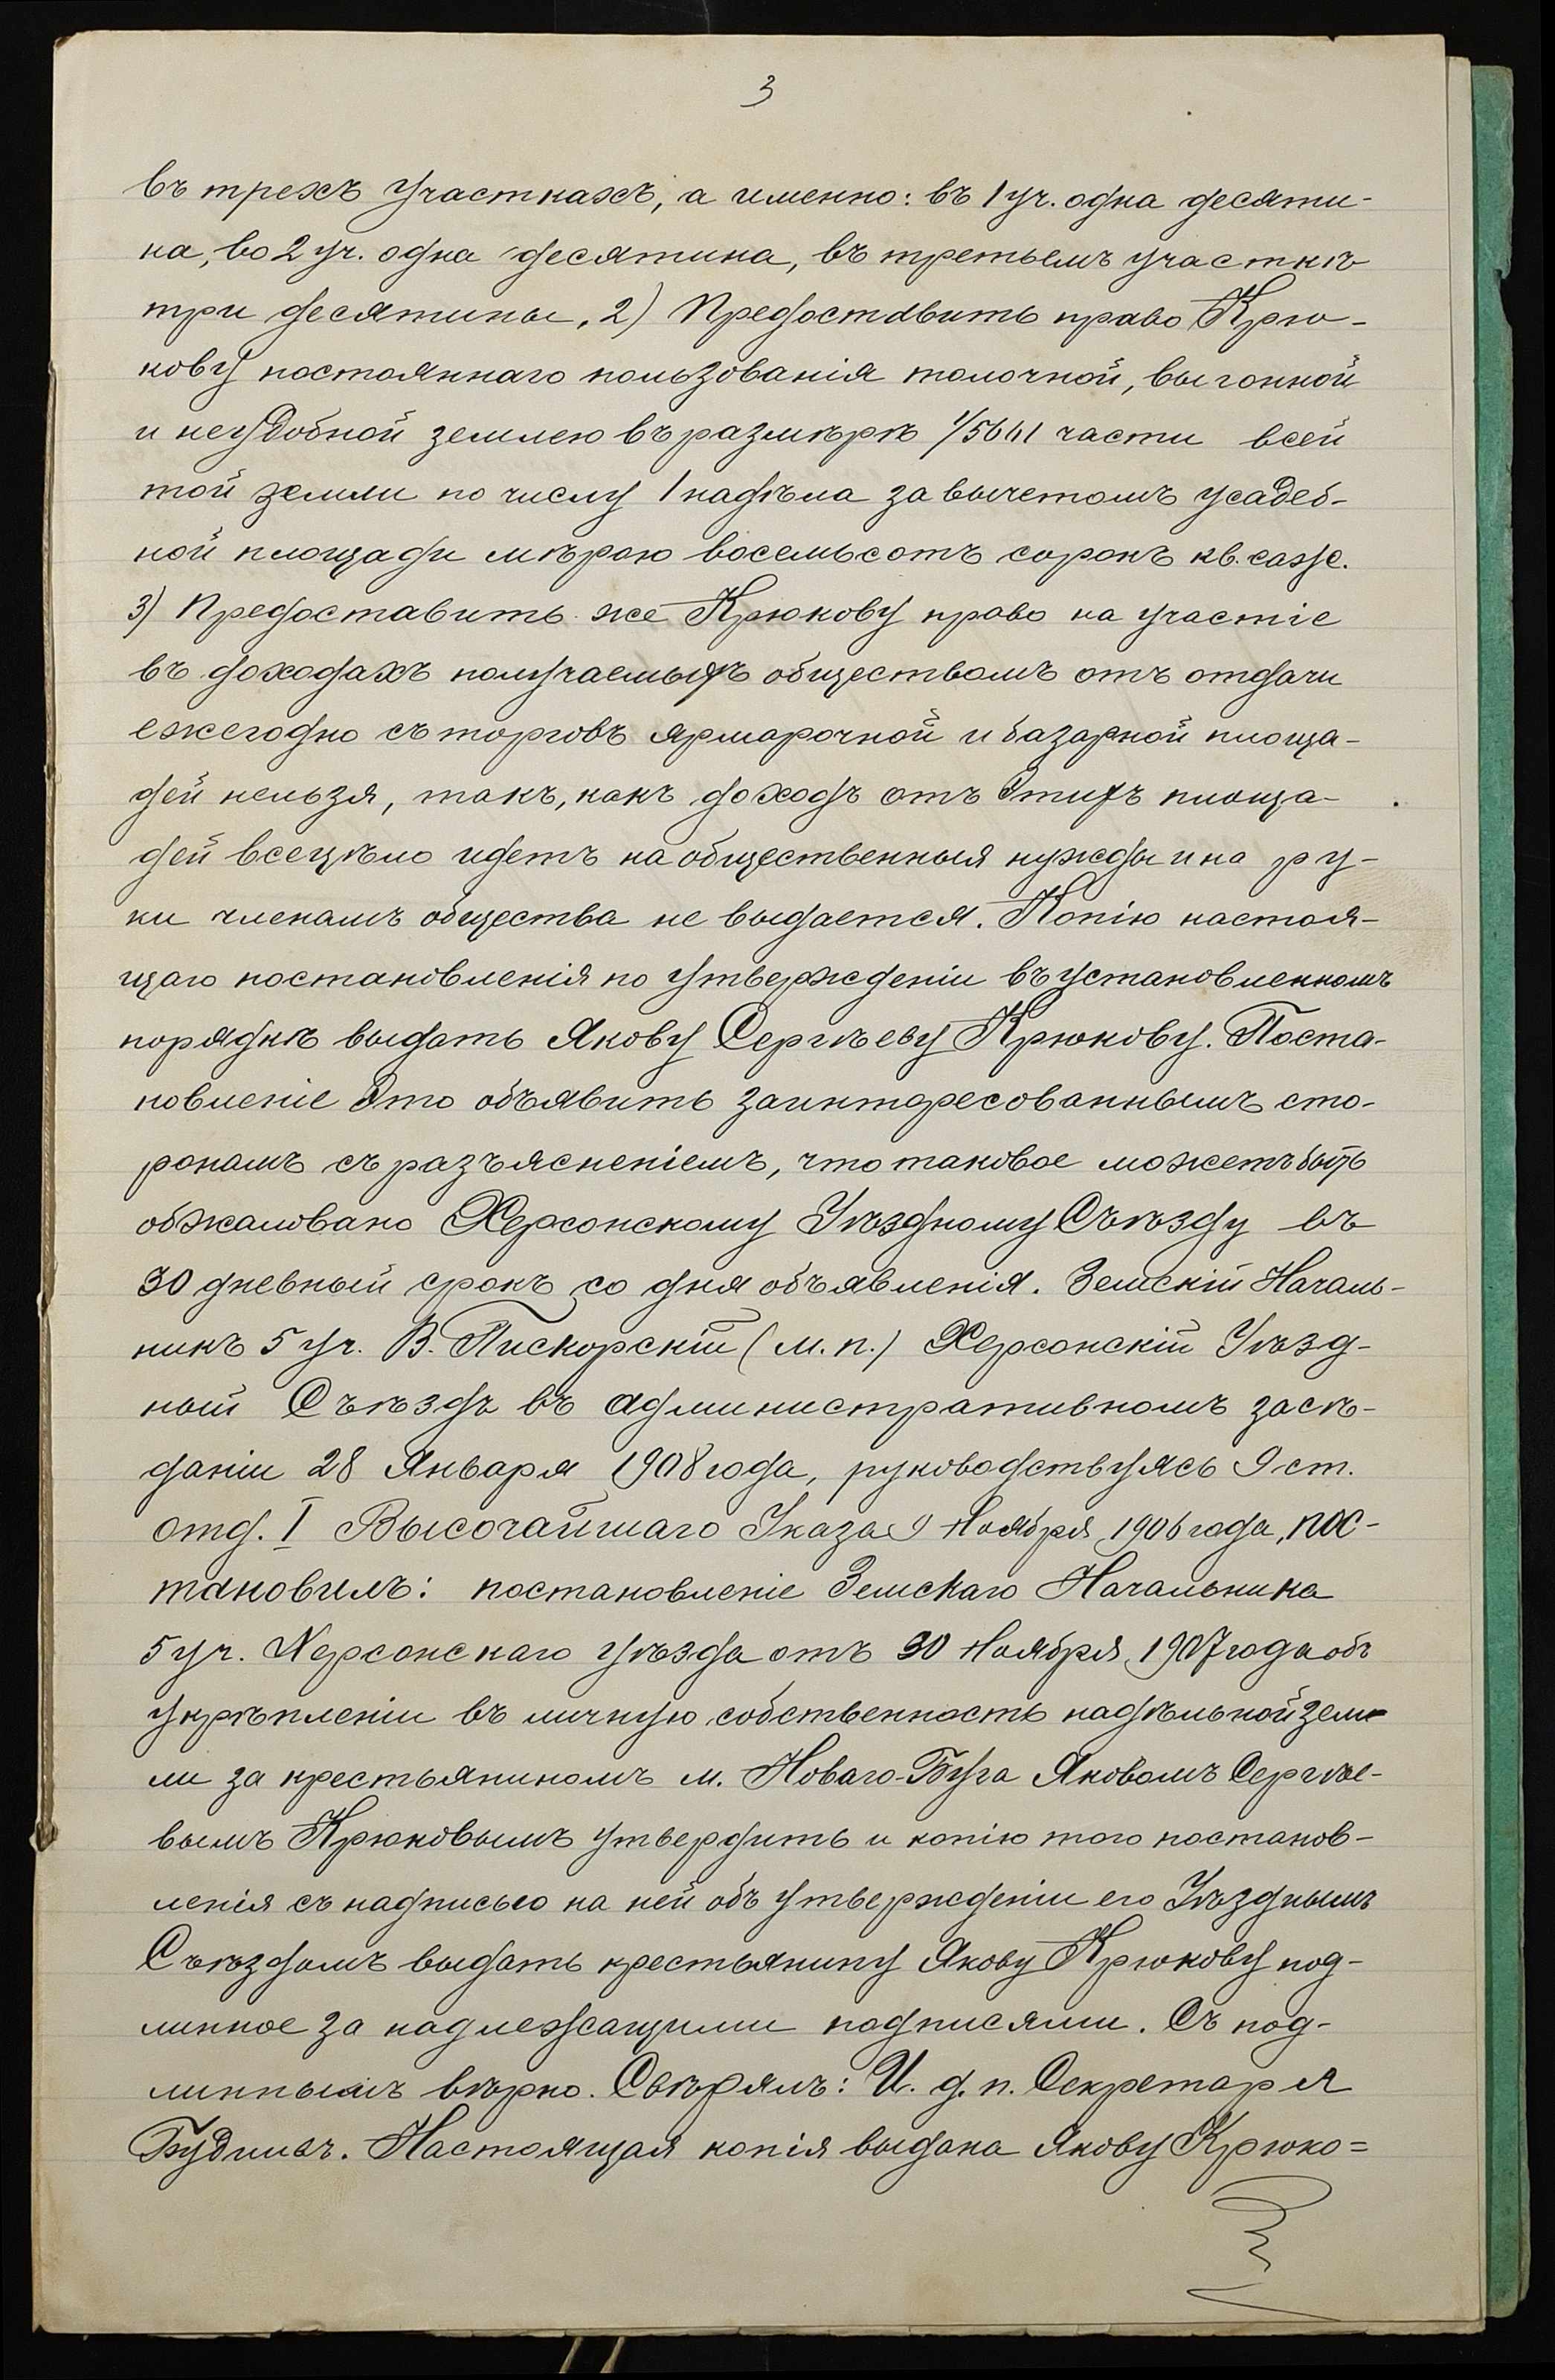 3
въ трехъ участкахъ, а именно: въ 1 уч. одна десяти-
на, во 2 уч. одна десятина, въ третьемъ участкѣ
три десятины, 2) Предоставить право Крю-
кову постояннаго пользованія толочной, выгонной
и неудобной землею въ размѣрѣ 1/5661 части всей
той земли по числу 1 надѣла за вычетомъ усадеб-
ной площади мѣрою восемьсотъ сорокъ кв. саж.
3) Предоставить же Крюкову право на участіе
въ доходахъ получаемыхъ обществомъ отъ отдачи
ежегодно съ торговъ ярмарочной и базарной площа-
дей нельзя, такъ, какъ доходъ отъ этихъ площа-
дей всецѣло идетъ на общественныя нужды и на ру-
ки членамъ общества не выдается. Копію настоя-
щаго постановленія по утвержденіи въ установленномъ
порядкѣ выдать Якову Сергѣеву Крюкову. Поста-
новленіе это объявить заинтересованнымъ сто-
ронамъ съ разъясненіемъ, что таковое можетъ быть
обжаловано Херсонскому Уѣздному Съѣзду въ
30 дневный срокъ со дня объявленія. Земскій Началь-
никъ 5 уч. В. Пискорскій (м. п.) Херсонскій Уѣзд-
ный Съѣздъ въ административномъ засѣ-
даніи 28 Января 1908 года, руководствуясь 9 ст.
отд. I Высочайшаго Указа 9 Ноября 1906 года, пос-
тановилъ: постановленіе Земскаго Начальника
5 уч. Херсонскаго уѣзда отъ 30 Ноября 1907 года объ
укрѣпленіи въ личную собственность надѣльной зем-
ли за крестьяниномъ м. Новаго-Буга Яковомъ Сергѣе-
вымъ Крюковымъ утвердить и копію того постанов-
ленія съ надписью на ней объ утвержденіи его Уѣзднымъ
Съѣздомъ выдать крестьянину Якову Крюкову под-
линное за надлежащими подписями. Съ под-
линнымъ вѣрно. Свѣрялъ: И. д. п. Секретаря
Настоящая копія выдана Якову Крюко=